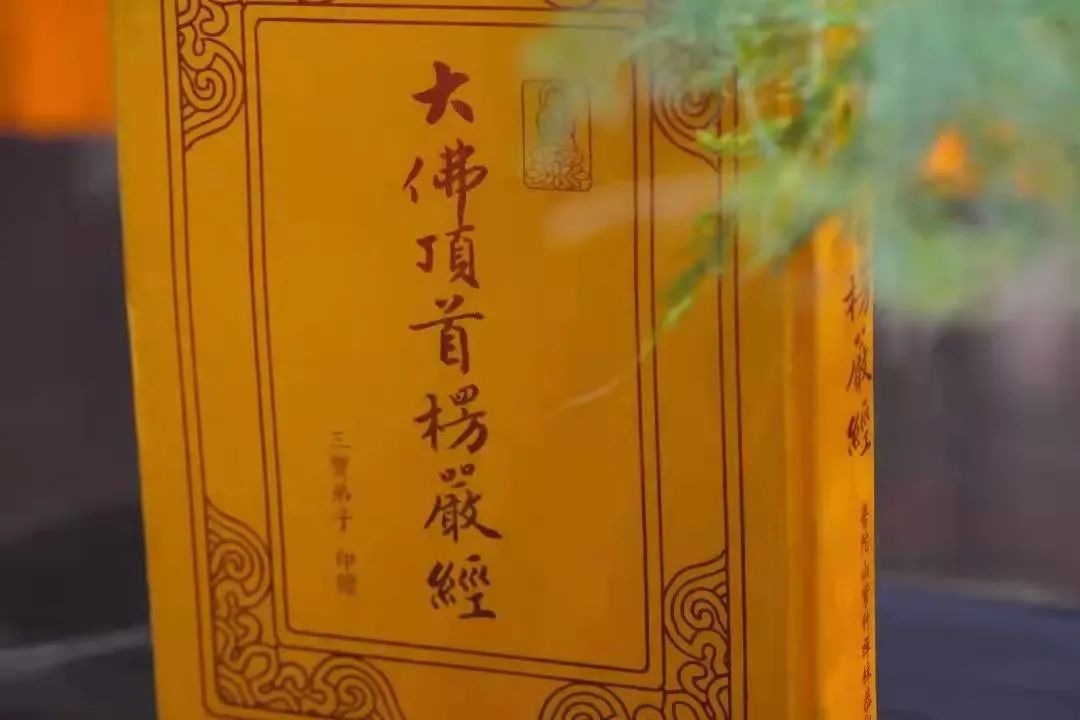 大佛頂首楞嚴經
三寶弟子 印贈
楞嚴經
普陀山
禪林